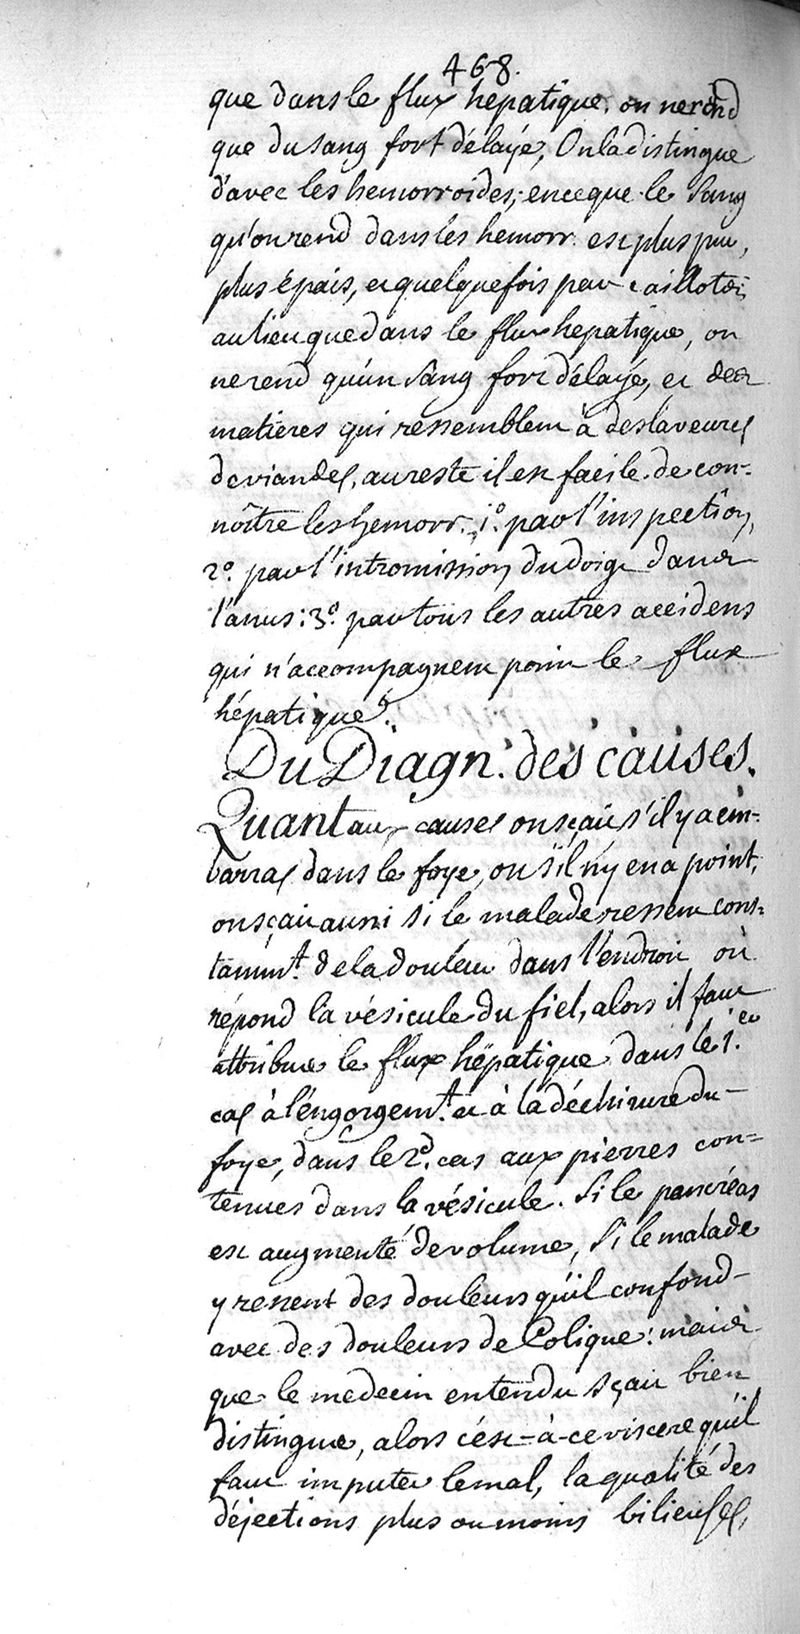 468.
que dans le flux hépatique. on ne rend
que du sang fort délayé, On la distingue
d'avec les hemorroides; en ce que le sang
qu'on rend dans les hemorr. est plus pur,
plus épais, et quelquefois par caillots;
au lieu que dans le flux hepatique, on
ne rend qu'un sang fort délayé, et des
matieres qui ressemblent à des laveures
de viandes, au reste il est facile de con-
nôitre les hemorr. 1.° par l'inspection,
2.° par l'intromission du doigt dans
l'anus: 3.° par tous les autres accidens
qui n'accompagnent point le flux
hépatique.
Du Diagn. des causes.
Quant aux causes on sçait s'il y a em-
barras dans le foye, ou s'il n'y en a point,
on sçait aussi si le malade ressent cons-
tamm.t de la douleur dans l'endroit où
répond la vésicule du fiel, alors il faut
attribuer le flux hépatique dans le 1.er
cas à l'engorgem.t et à la déchirure du
foye, dans le 2.d cas aux pierres con-
tenues dans la vésicule. Si le pancréas
est augmenté de volume, si le malade
y ressent des douleurs qu'il confond
avec des douleurs de Colique: mais
que le medecin entendu sçait bien
distinguer, alors c'est-à-ce viscere qu'il
faut imputer le mal, la qualité des
déjections plus ou moins bilieuses,